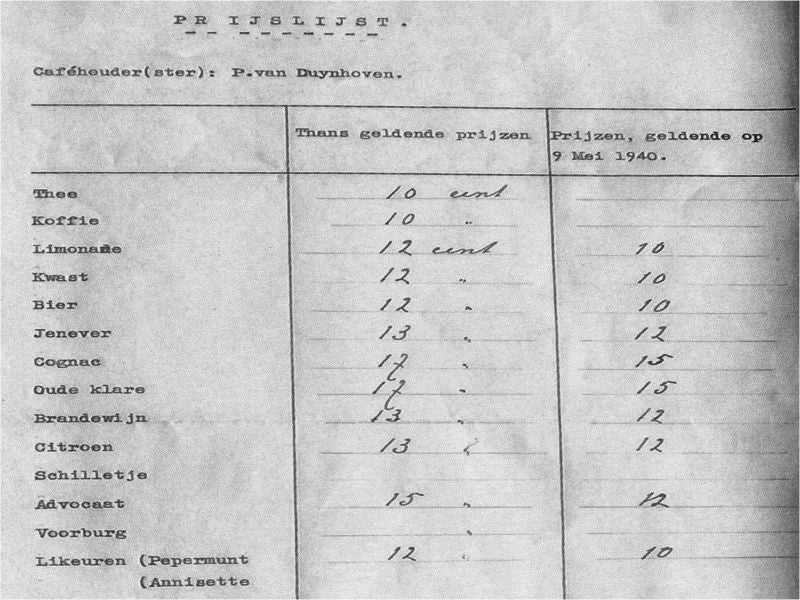 PRIJSLIJST.
Caféhouder(ster): P.van Duynhoven.
Thans geldende prijzen Prijzen, geldende op
9 Mei 1940.
Thee 10 cent
Koffie 10 "
Limonade 12 cent 10
Kwast 12 " 10
Bier 12 " 10
Jenever 13 " 12
Cognac 17 " 15
Oude klare 17 " 15
Brandewijn 13 " 12
Citroen 13 " 12
Schilletje
Advocaat 15 " 12
Voorburg "
Likeuren (Pepermunt 12 " 10
(Annisette